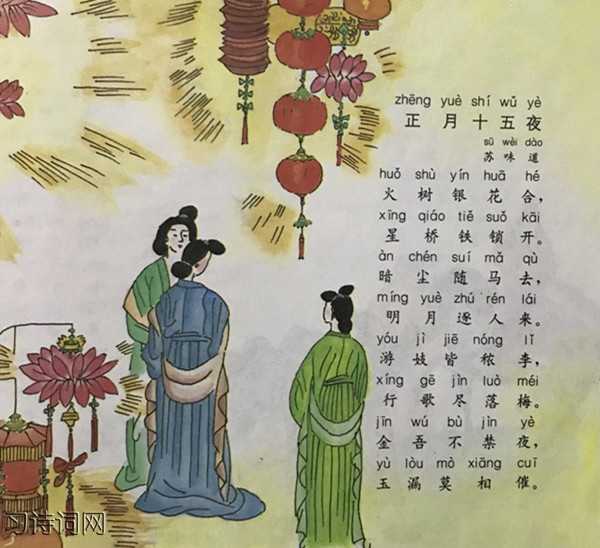 zhēng yuè shí wǔ yè
正月十五夜
sū wèi dào
苏味道
huǒ shù yín huā hé
火树银花合，
xīng qiáo tiě suǒ kāi
星桥铁锁开。
àn chén suí mǎ qù
暗尘随马去，
míng yuè zhú rén lái
明月逐人来。
yóu jì jiē nóng lǐ
游妓皆秾李，
xíng gē jìn luò méi
行歌尽落梅。
jīn wú bù jìn yè
金吾不禁夜，
yù lòu mò xiāng cuī
玉漏莫相催。
习诗词网